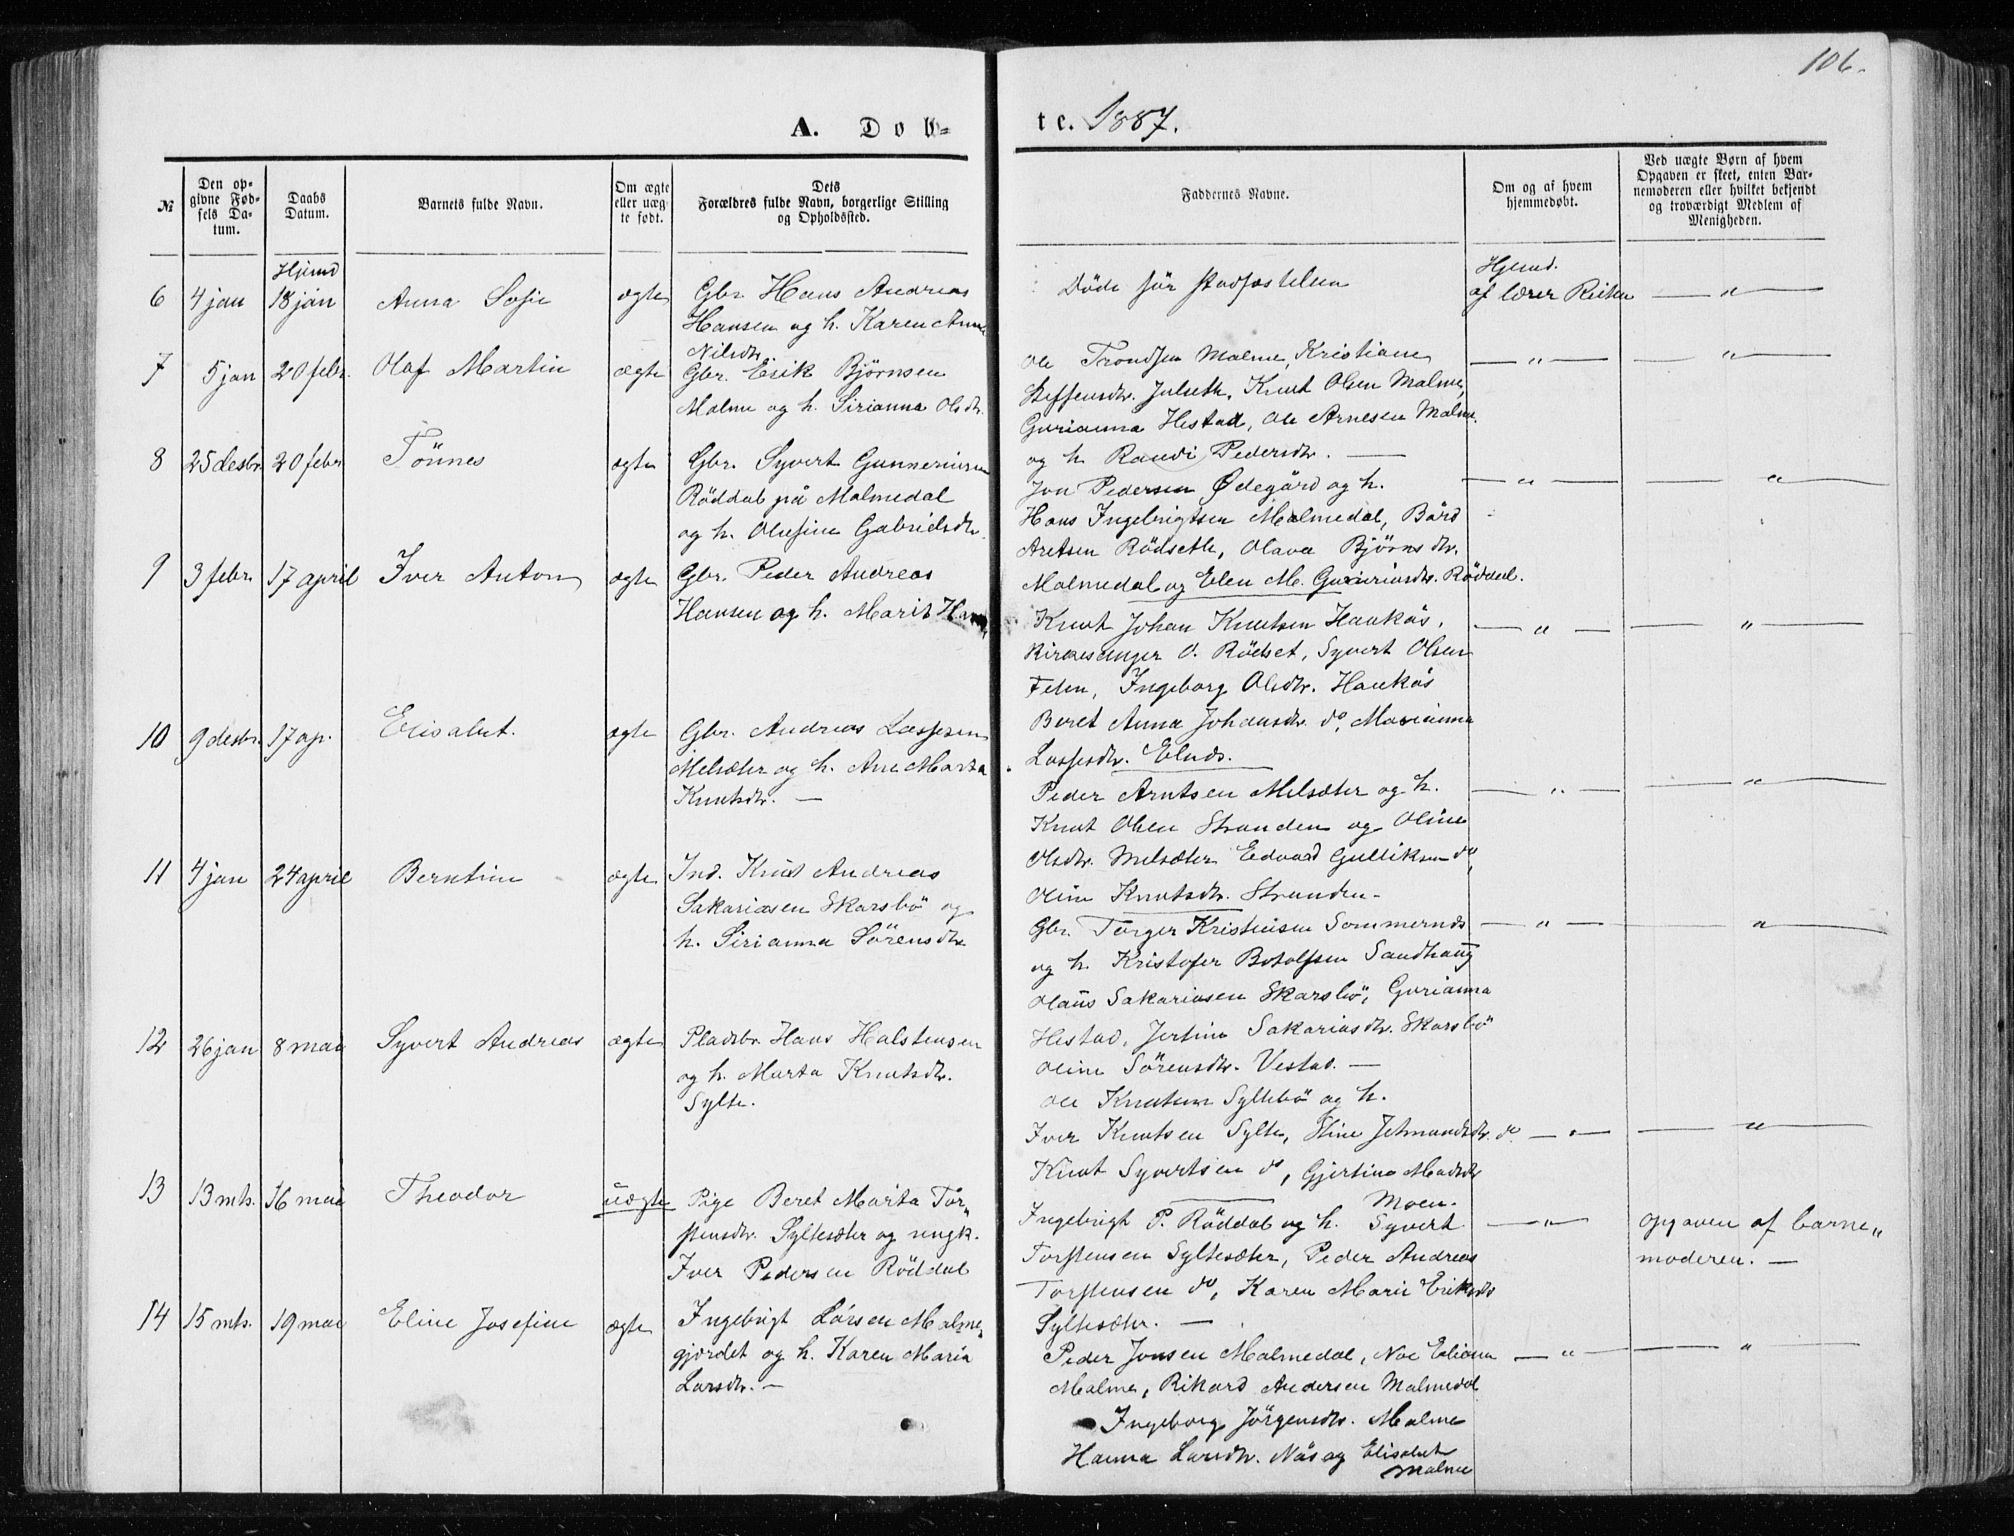 106.
A. Dob-
te. 1887.
№
Den op-
givne Fød-
sels Da-
tum.
Daabs
Datum.
Barnets fulde Navn.
Om ægte
eller uæg-
te født.
Dets
Forældres fulde Navn, borgerlige Stilling
og Opholdssted.
Faddernes Navne.
Om og af hvem
hjemmedøbt.
Ved uægte Børn af hvem
Opgaven er skeet, enten Bar-
nemoderen eller hvilket bekjendt
og troværdigt Medlem af
Menigheden.
Hjmd
6 4 jan 18 jan Anna Sofie ægte Gbr. Hans Andreas
Hansen og h. Karen Anna
Nilsdtr.
Døde før stadfæstelsen
Hjemd.
af lærer Reiten — " —
7 5 jan 20 febr. Olaf Martin ægte Gbr. Erik Bjørnsen
Malme og h. Sirianna Olsdtr.
Ole Trondsen Malme, Kristiane — " — — " —
Steffensdtr. Julseth, Knut Olsen Malme,
Gurianna Hestad, Ole Arnesen Malme
og h. Randi Pedersdtr. —
8 25 desbr. 20 febr. Tönnes ægte Gbr. Syvert Gunneriusen
Röddal på Malmedal
og h. Olufine Gabrielsdtr.
Jon Pedersen Ødegård og h. — " — — " —
Hans Ingebrigtsen Malmedal, Bård
Aretsen Rödseth, Olava Bjørnsdtr.
Malmedal og Elen M. Guneriusdtr. Röddal.
9 3 febr. 17 april Iver Anton ægte Gbr. Peder Andreas
Hansen og h. Marit Hans
Knut Johan Knutsen Haukås, — " — — " —
Kirkesanger O. Rödset, Syvert Olsen
Ingeborg Olsdtr. Haukås
Beret Anna Johansdtr. do, Marianna
Lassesdtr.
10 9 desbr. 17 ap. Elisabet. ægte Gbr. Andreas Lassesen
Melsæter og h. Ane Marta
Knutsdtr. —
Peder Arntsen Melsæter og h. — " — — " —
Knut Olsen Stranden og Oline
Olsdtr. Melsæter Edvard Gulliksen do,
Oline Knutsdtr. Stranden -
11 4 jan 24 april Berntine ægte Ind. Knut Andreas
Sakariasen Skarsbö og
h. Sirianna Sörensdtr
Gbr. Torger Kristensen Sommernds — " — — " —
og h. Kristofer Botolfsen Sandhaug
Olaus Sakariasen Skarsbö, Gurianna
Hestad, Jertine Sakariasdtr. Skarsbö
Oline Sörensdtr. Vestad. —
12 26 jan 8 mai Syvert Andreas ægte Pladsbr. Hans Halstensen
og h. Marta Knutsdtr.
Sylte.
Ole Knutsen Syltebö og h.
Iver Knutsen Sylte, Stine Jetmundsdtr. do. — " — — " —
Knut Syvertsen do, Gjertine Madsdtr
Moen.
13 13 mts. 16 mai Theodor uægte Pige Beret Marta Tor„
stensdtr. Syltesæter og ungk.
Iver Pedersen Röddal
Ingebrigt P. Röddal og h. Syvert — " — opgaven af barne„
Torstensen Syltesæter, Peder Andreas moderen. —
Torstensen do, Karen Marie Eriksdtr
Syltesæter. —
14 15 mts. 19 mai Eline Josefine ægte Ingebrigt Larsen Malme„
gjærdet og h. Karen Maria
Larsdtr. —
Peder Jonsen Malmedal, Noe Eliassen — " — — " —
Malme, Rikard Andersen Malmedal
Ingeborg Jörgensdtr. Malme
Hanna Larsdtr. Näs og Elisabet
Malme